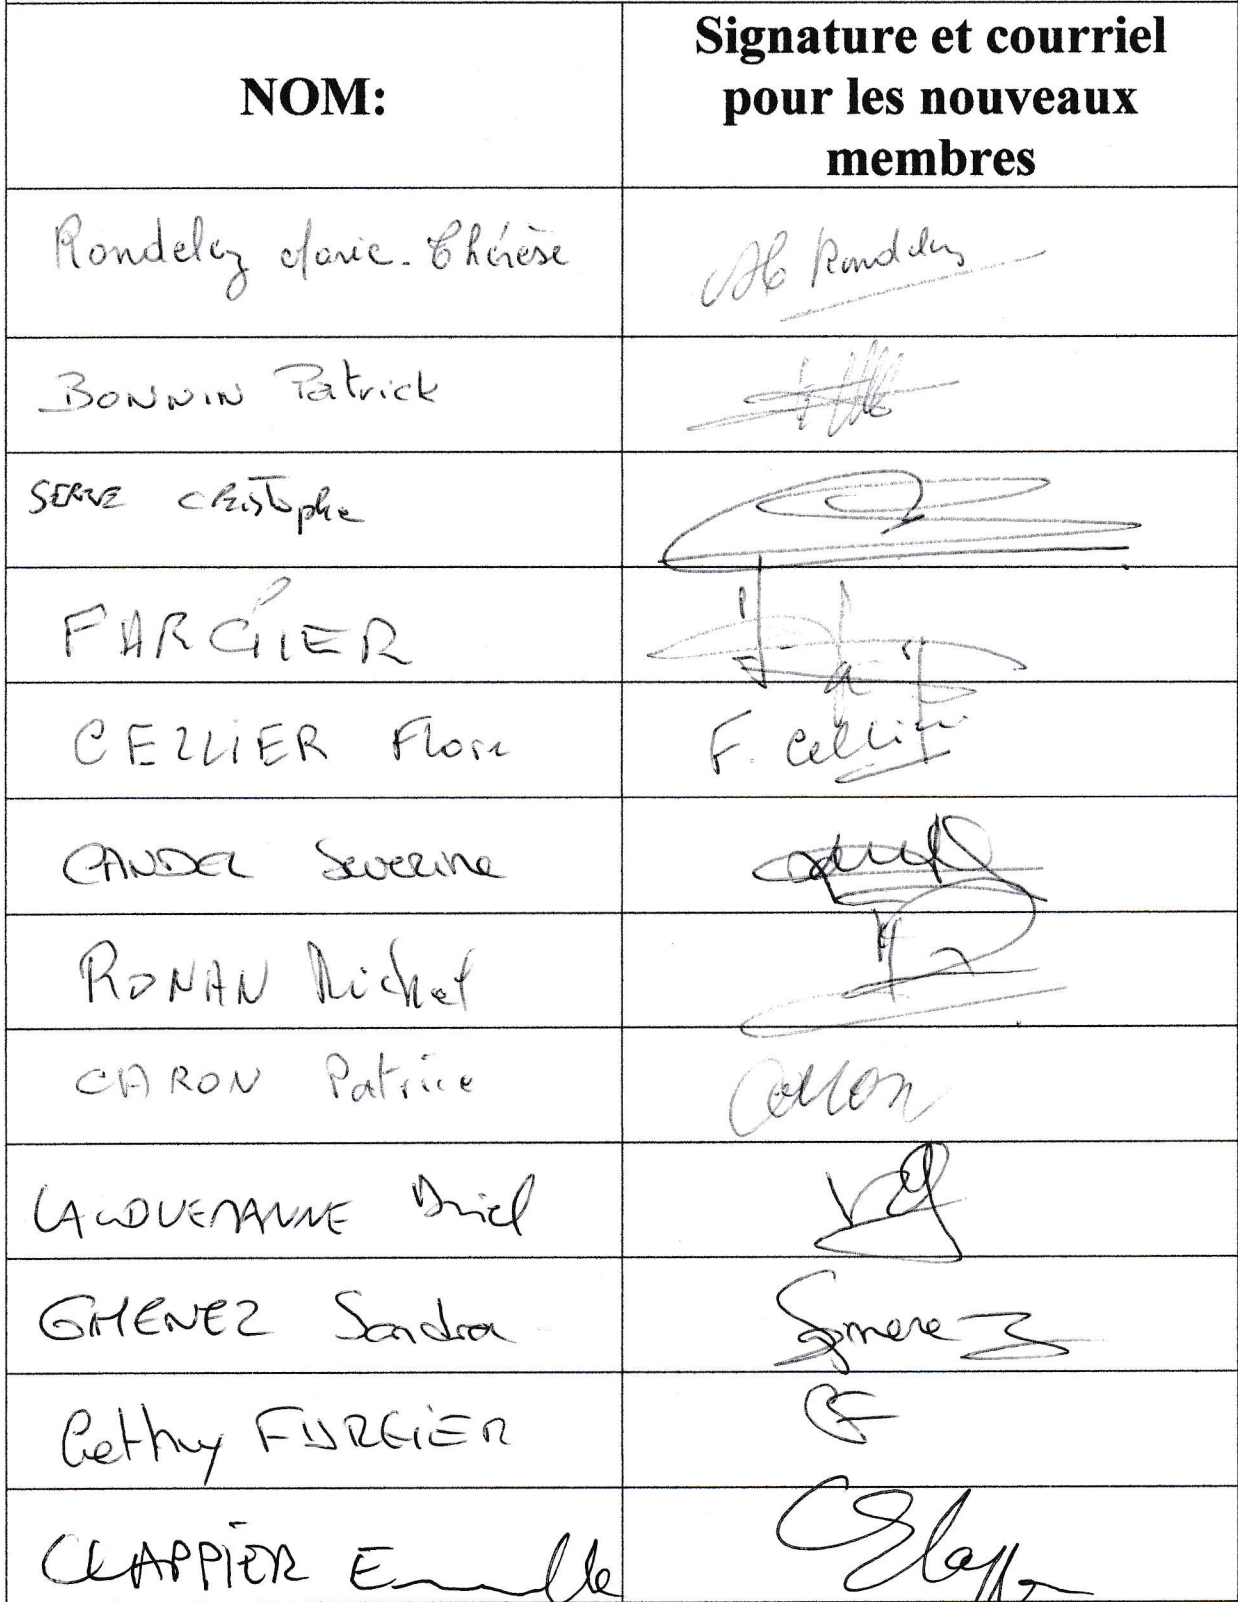 NOM:
Signature et courriel
pour les nouveaux
membres
Rondelez Marie-Thérèse
MC Rondelez
BONNIN Patrick
SERVE Christophe
FARGIER
CELLIER Flore
F. Cellier
CANDEL Severine
RONAN Michel
CARON Patrice
Caron
GIMENEZ Sandra
Gimenez
Cathy FARGIER
CF
CLAPPIER